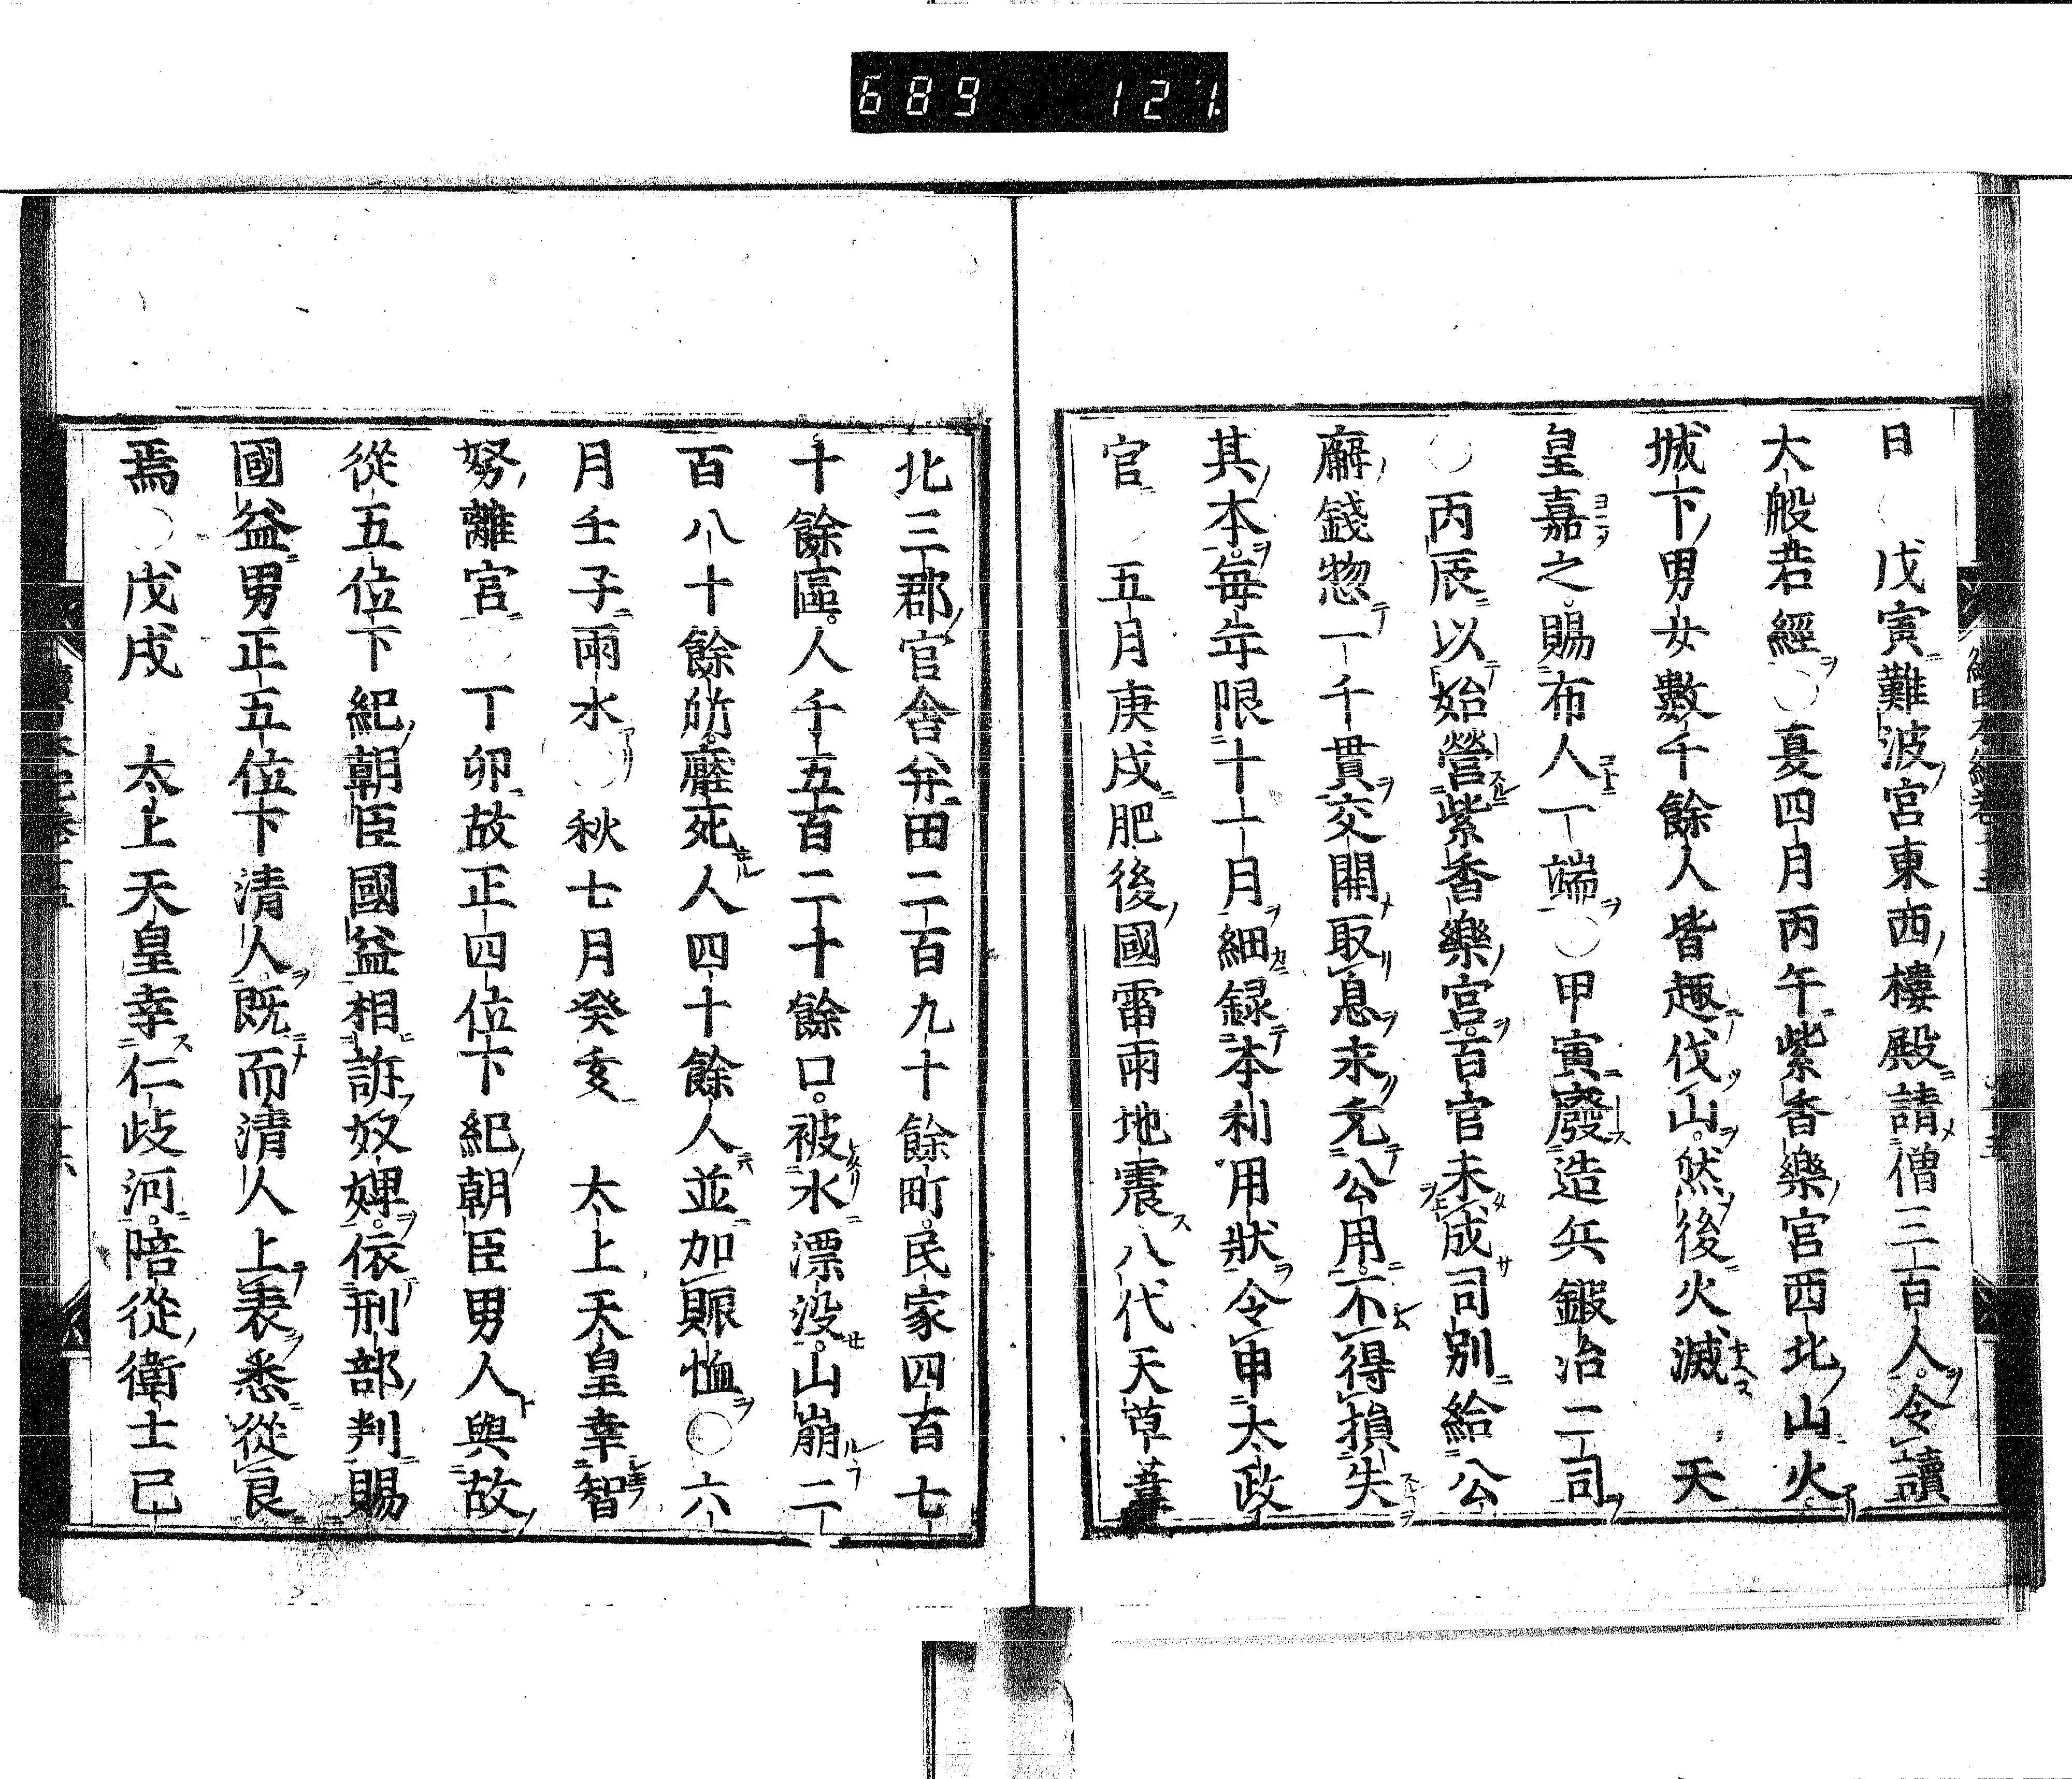 689 127.
日○戊寅難波宮東西樓殿請僧三百人令讀
大般若經○夏四月丙午紫香樂宮西北山火
城下男女數千餘人皆趣伐山。然後火滅 天
皇嘉之。賜布人一端○甲寅廢造兵鍛冶二司
○丙辰以始營紫香樂宮。百官未成司別給公
廨錢惣一千貫交關取息永充公用。不得損失
其本。每年限十一月細録本利用狀令申太政
官○五月庚戌肥後國雷雨地震八代天草葦
北三郡官舎并田二百九十餘町。民家四百七
十餘區。人千五百二十餘口。被水漂没。山崩二
百八十餘所。壓死人四十餘人並加賑恤○六
月壬子雨水○秋七月癸亥 太上天皇幸智
努離宮○丁卯故正四位下紀朝臣男人與故
從五位下紀朝臣國益相訴奴婢。依刑部判賜
國益男正五位下清人既而清人上表悉從良
焉○戊戌 太上天皇幸仁歧河。陪從衛士已